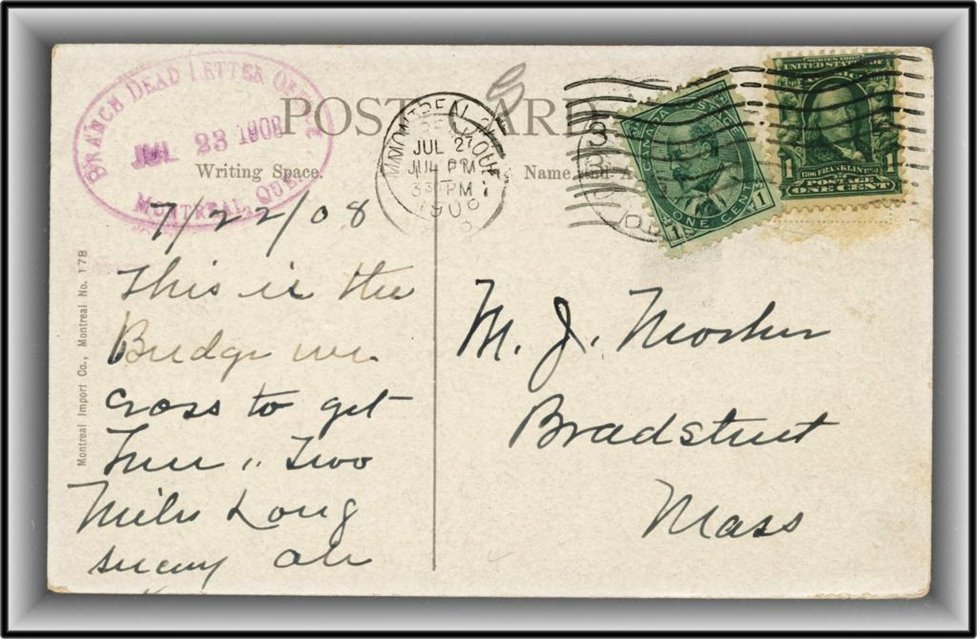 BRANCH DEAD LETTER OFF
JUL 23 1908
MONTREAL, QUE.
POST CARD
Writing Space.
Name and A
MONTREAL QUE
JUL 2
PM
3 30 PM
1908
CANADA POSTAGE
1 ONE CENT 1
SERIES 1902
UNITED STATES OF
1706 FRANKLIN 1790
POSTAGE
1 ONE CENT 1
7/22/08
This is the
Bridge we
cross to get
here, Two
Miles Long
Montreal Import Co., Montreal No. 178
M. J. Mosher
Bradstreet
Mass